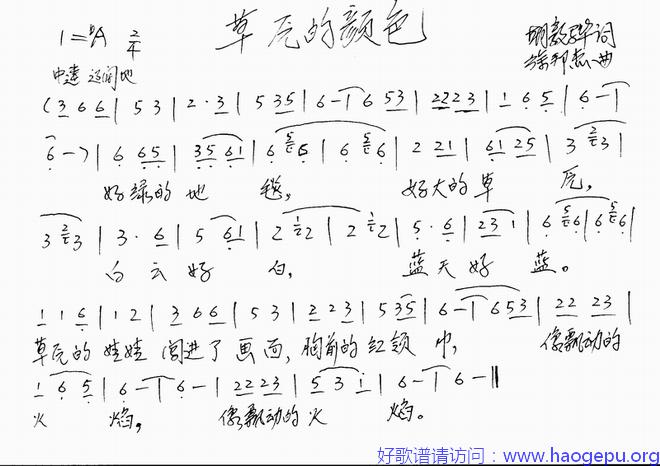 草原的颜色
1=♭A 2/4
词
徐邦杰曲
中速 辽阔地
(3 6 6 | 5 3 | 2 · 3 | 5 3 5 | 6 - | 6 5 3 | 2 2 2 3 | 1 6 5 | 6 - |
6 -) | 6 6 5 | 3 5 6 1 | 6 5 6 | 6 5 6 | 2 2 1 | 6 1 2 5 | 3 2 3 |
好绿的地 毯, 好大的草 原,
3 2 3 | 3 · 6 | 5 6 1 | 2 1 2 | 2 1 2 | 5 · 6 | 2 3 1 | 6 5 6 | 6 5 6 |
白云好 白, 蓝天好 蓝。
1 1 6 | 1 2 | 3 6 6 | 5 3 | 2 2 3 | 5 3 5 | 6 - | 6 5 3 | 2 2 2 3 |
草原的娃娃 闯进了画面, 胸前的红领 巾, 像飘动的
1 6 5 | 6 - | 6 - | 2 2 2 3 | 5 3 i | 6 - | 6 - ‖
火 焰, 像飘动的火 焰。
好歌谱请访问：www.haogepu.org